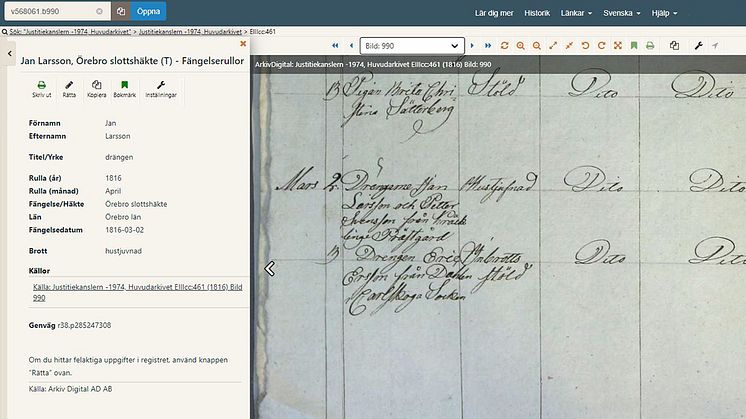 v568061.b990 Öppna
Lär dig mer Historik Länkar Svenska Hjälp
Sök: "Justitiekanslern -1974, Huvudarkivet" > Justitiekanslern -1974, Huvudarkivet > EIIIcc:461
Jan Larsson, Örebro slottshäkte (T) - Fängelserullor
Skriv ut Rätta Kopiera Bokmärk Inställningar
Förnamn Jan
Efternamn Larsson
Titel/Yrke drängen
Rulla (år) 1816
Rulla (månad) April
Fängelse/Häkte Örebro slottshäkte
Län Örebro län
Fängelsedatum 1816-03-02
Brott hustjuvnad
Källor
Källa: Justitiekanslern -1974, Huvudarkivet EIIIcc:461 (1816) Bild
990
Genväg r38.p285247308
Om du hittar felaktiga uppgifter i registret, använd knappen
"Rätta" ovan.
Källa: Arkiv Digital AD AB
Bild: 990
ArkivDigital: Justitiekanslern -1974, Huvudarkivet EIIIcc:461 (1816) Bild: 990
Pigan Brita Chri Stöld Dito Dito
stina Sätterberg
Mars 2 Drengarne Jan Hustjufnad Dito Dito
Larsson och Petter
Svensson från
linge Prästgård
Drengen Eric Inbrotts Dito Dito
Ersson från stöld
Carlskoga Socken